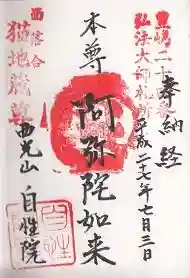 奉納経
豊嶋二十四番
弘法大師札所
平成二七年七月三日
本尊
阿弥陀如来
西落合
猫地蔵尊
西光山 自性院
自性院